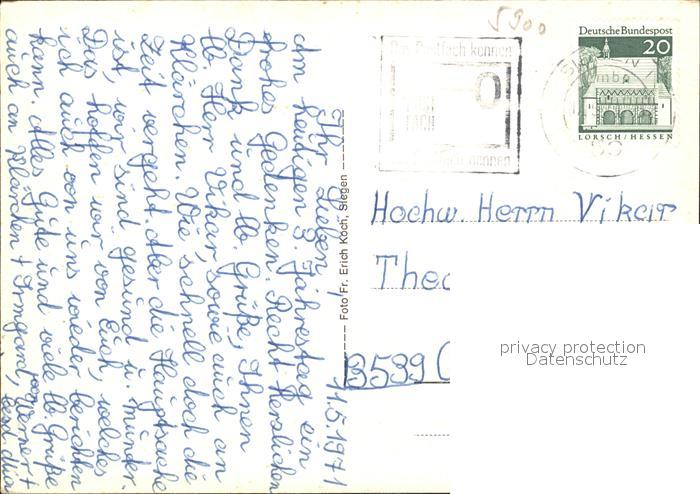 5900
Das Postfach kennen
Deutsche Bundespost
20
LORSCH / HESSEN
Hochw. Herrn Vikar
3539
privacy protection
Datenschutz
Foto Fr. Erich Koch, Siegen
11.5.1971
Ihr Lieben,
Am heutigen 3. Jahrestag ein
frohes Gedenken. Recht herzlichen
Dank und lb. Grüße, Ihnen
lb. Herr Vikar, sowie auch an
Klärchen. Wie schnell doch die
Zeit vergeht. Aber die Hauptsache
ist, wir sind gesund u. munter.
Das hoffen wir von Euch, welches
ich auch von uns wieder berichten
kann. Alles Gute und viele lb. Grüße
auch an Klärchen + Irmgard, von Werner +